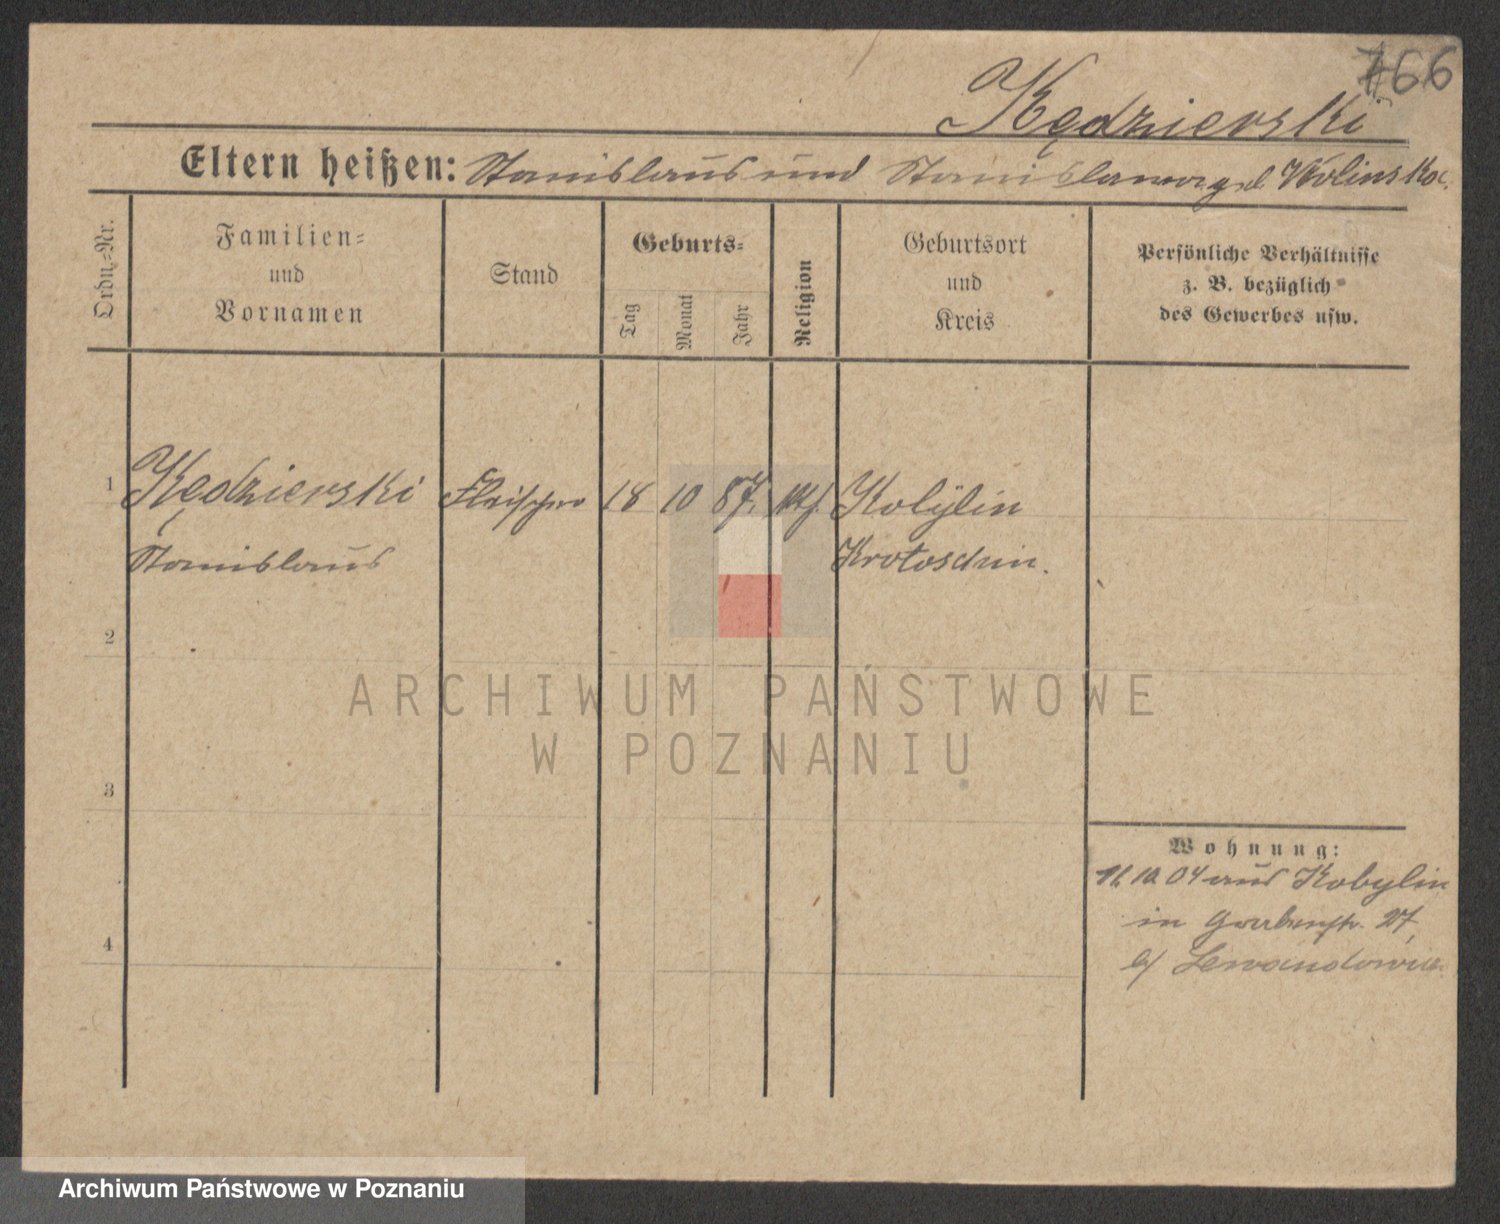 766
Kędzierski
Eltern heißen: Stanislaus und Stanislawa geb Wolinska.
Ordn.=Nr.
Familien=
und
Vornamen
Stand
Geburts=
Tag
Monat
Jahr
Religion
Geburtsort
und
Kreis
Persönliche Verhältnisse
z. B. bezüglich
des Gewerbes usw.
1 Kędzierski Fleischer 18 10 87. kth. Kobylin
Stanislaus Krotoschin.
2
3
4
Wohnung:
11.10.04 aus Kobylin
in Gerberstr. 27
b/ Lewandowicz
ARCHIWUM PAŃSTWOWE
W POZNANIU
Archiwum Państwowe w Poznaniu